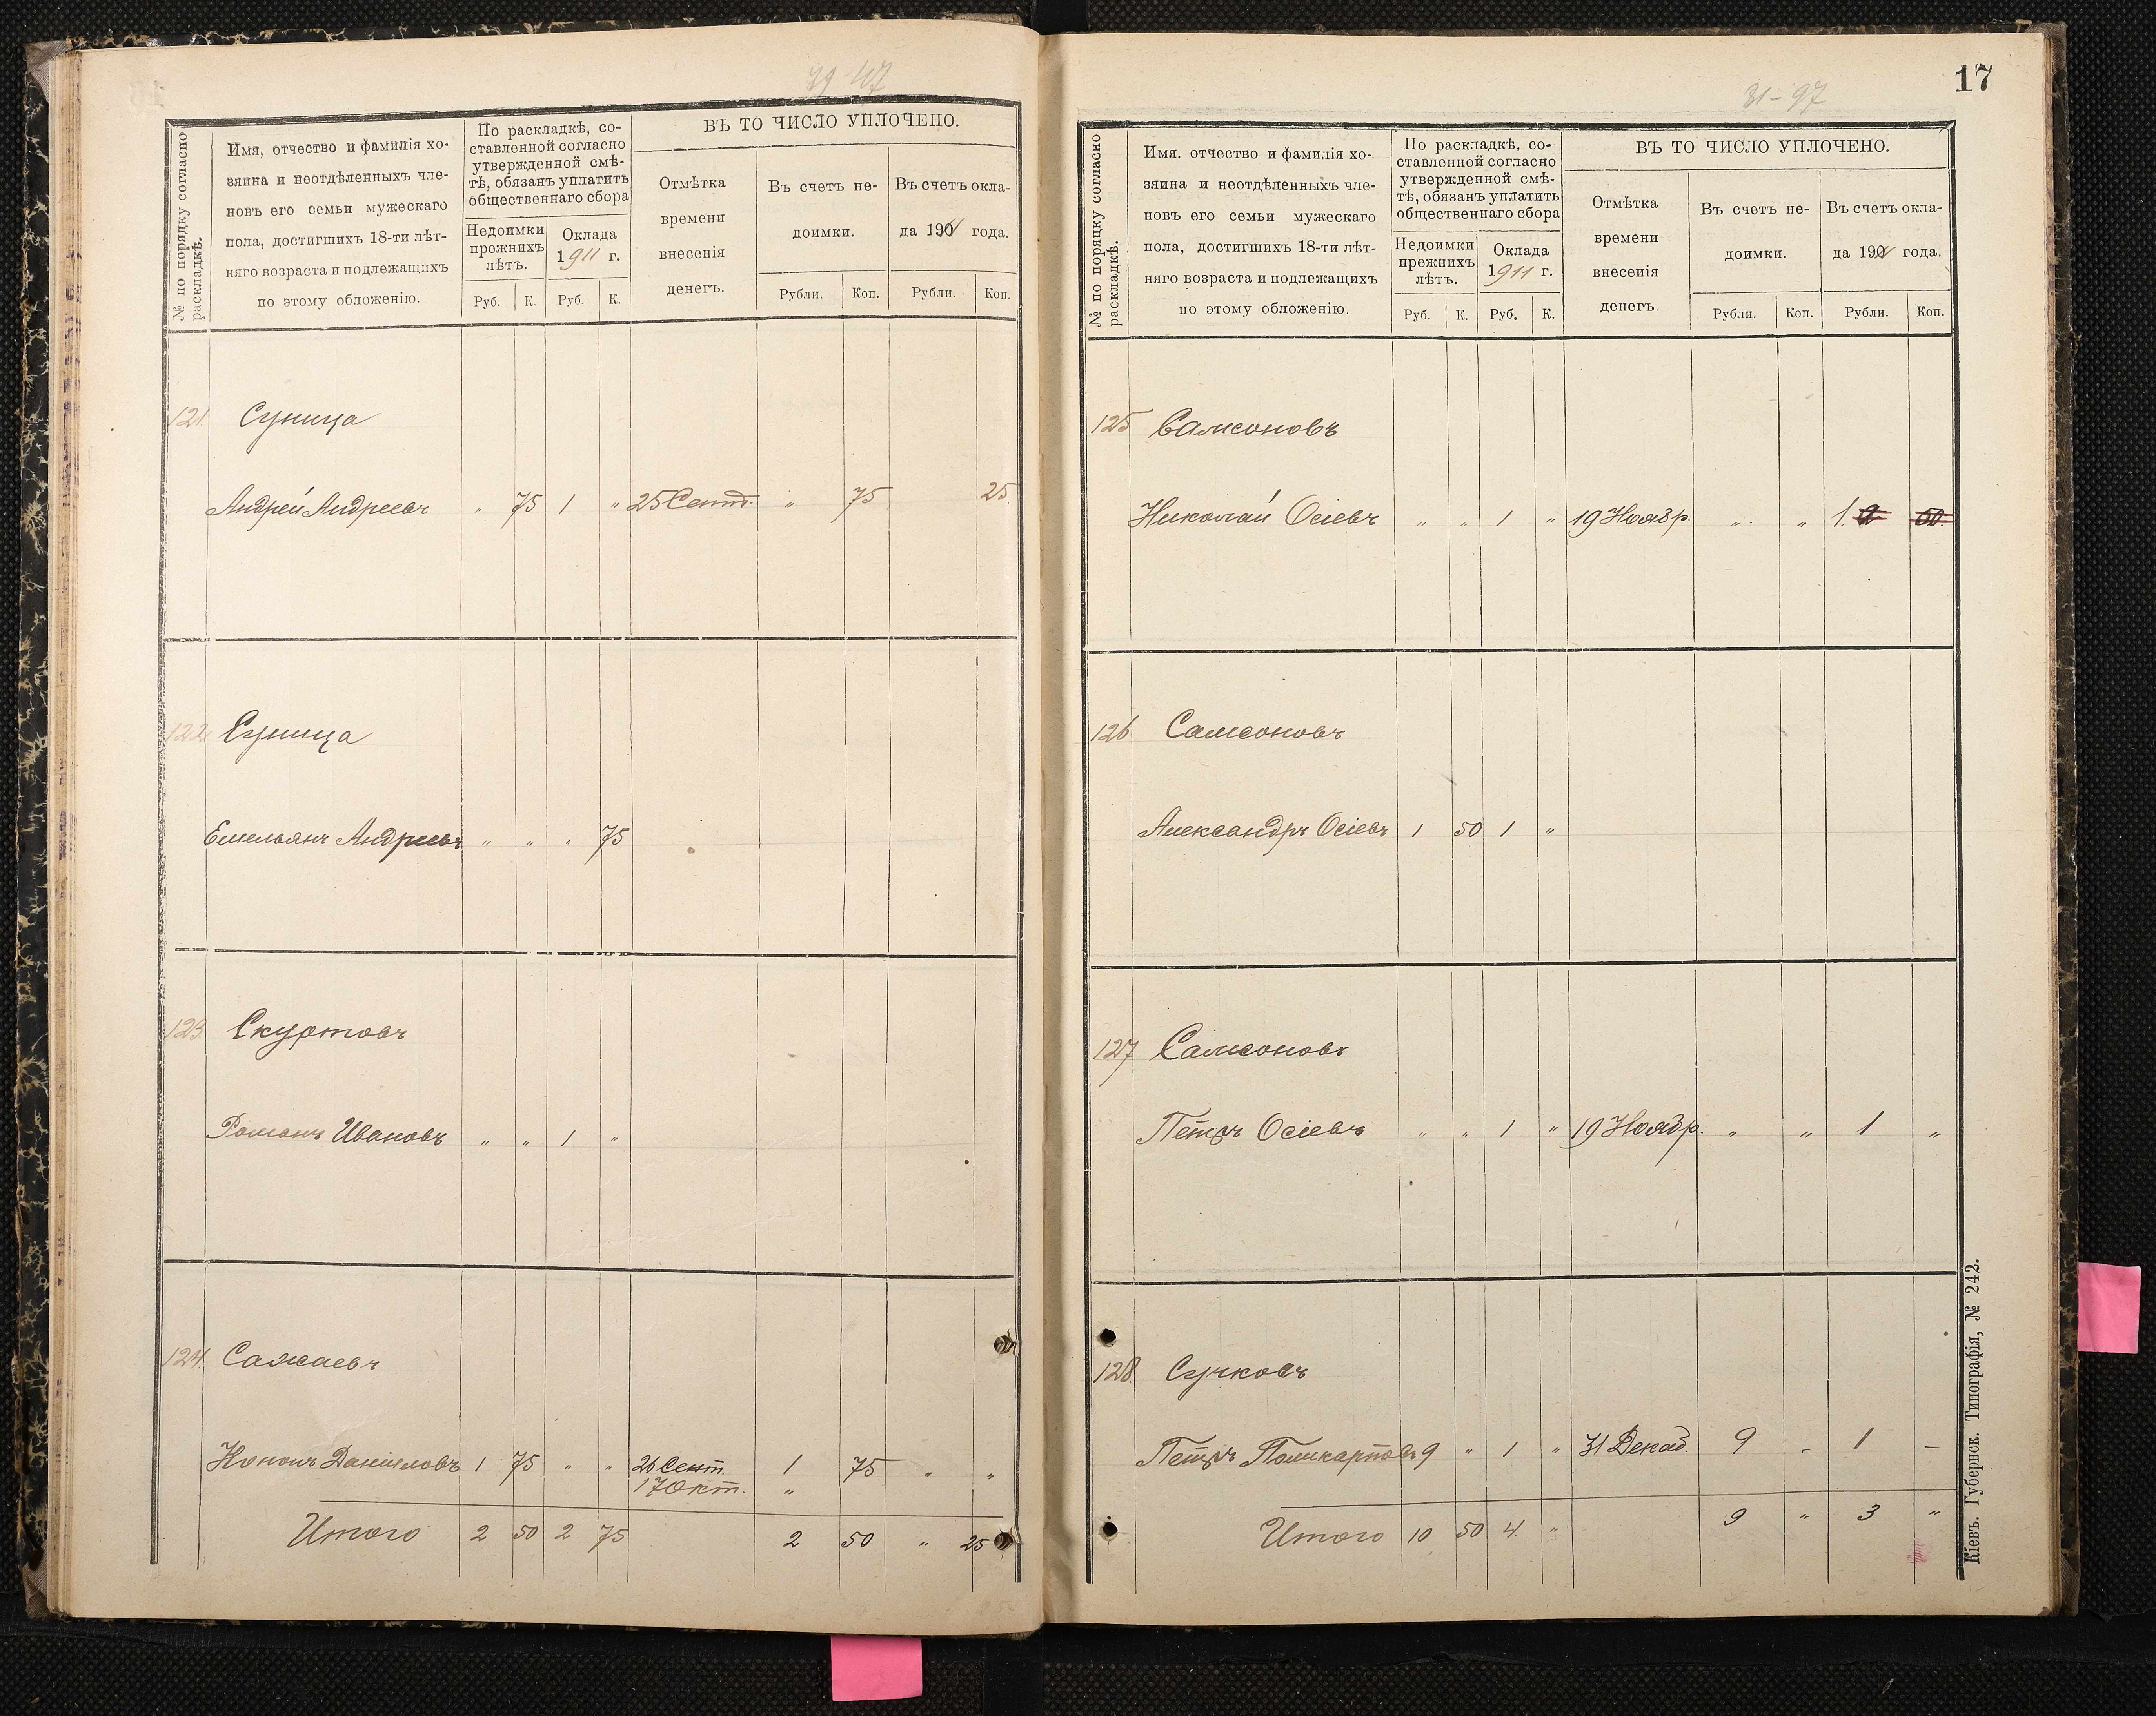 79-47
№ по порядку согласно раскладкѣ.
Имя, отчество и фамилія хо-
зяина и неотдѣленныхъ чле-
новъ его семьи мужескаго
пола, достигшихъ 18-ти лѣт-
няго возраста и подлежащихъ
по этому обложенію.
По раскладкѣ, со-
ставленной согласно
утвержденной смѣ-
тѣ, обязанъ уплатить
общественнаго сбора
Недоимки
прежнихъ
лѣтъ.
Оклада
1911 г.
Руб. К. Руб. К.
ВЪ ТО ЧИСЛО УПЛОЧЕНО.
Отмѣтка
времени
внесенія
денегъ.
Въ счетъ не-
доимки.
Въ счетъ окла-
да 1911 года.
Рубли. Коп. Рубли. Коп.
121. Суница
Андрей Андреевъ " 75 1 " 25 Сент. " 75 25.
122 Суница
Емельянъ Андреевъ " " " 75
123. Скуртовъ
Романъ Ивановъ " " 1 "
124. Сажаевъ
Кононъ Даниловъ 1 75 " " 26 Сент. 1 75 " "
17 Окт. "
Итого 2 50 2 75 2 50 " 25
17
31-97
№ по порядку согласно раскладкѣ.
Имя. отчество и фамилія хо-
зяина и неотдѣленныхъ чле-
новъ его семьи мужескаго
пола, достигшихъ 18-ти лѣт-
няго возраста и подлежащихъ
по этому обложенію.
По раскладкѣ, со-
ставленной согласно
утвержденной смѣ-
тѣ, обязанъ уплатить
общественнаго сбора
Недоимки
прежнихъ
лѣтъ.
Оклада
1911 г.
Руб. К. Руб. К.
ВЪ ТО ЧИСЛО УПЛОЧЕНО.
Отмѣтка
времени
внесенія
денегъ.
Въ счетъ не-
доимки.
Въ счетъ окла-
да 1911 года.
Рубли. Коп. Рубли. Коп.
125 Самсоновъ
Николай Осіевъ " " 1 " 19 Ноябр. " " 1. 2 50.
126 Самсоновъ
Александръ Осіевъ 1 50 1 "
127 Самсоновъ
Петръ Осіевъ " " 1 " 19 Ноябр. " " 1 "
128. Сучковъ
Петръ Поликарповъ 9 " 1 " 31 Декаб. 9 - 1 -
Итого 10 50 4. " 9 " 3 "
Кіевъ. Губернск. Типографія, № 242.